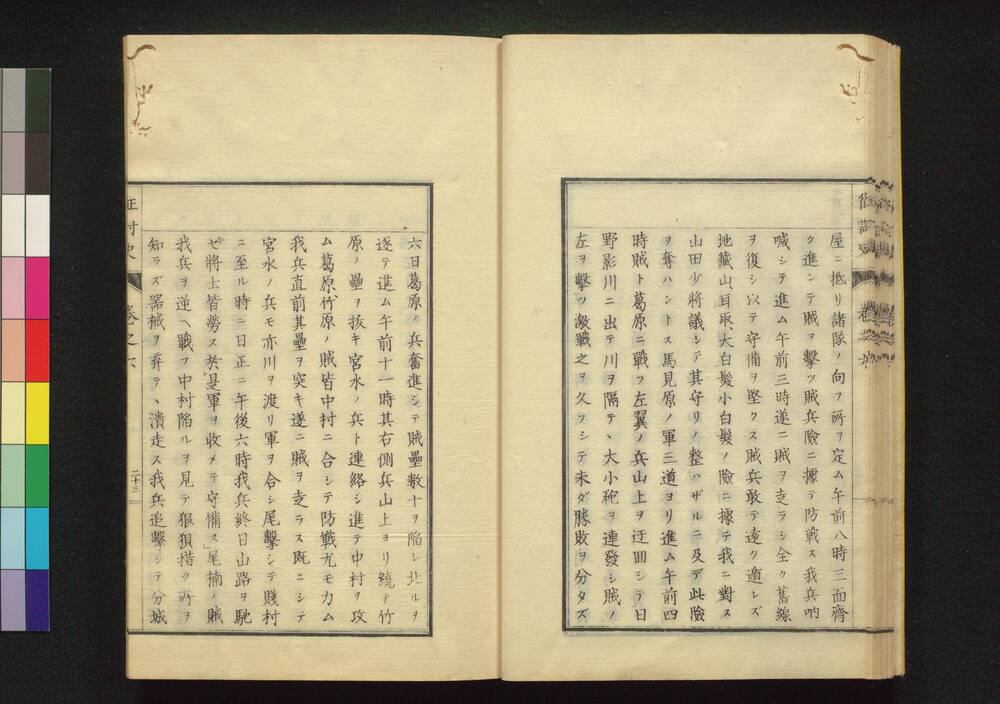 屋ニ抵リ諸隊ノ向フ所ヲ定ム午前八時三面齊
ク進ンテ賊ヲ擊ツ賊兵險ニ據テ防戰ス我兵吶
喊シテ進ム午前三時遂ニ賊ヲ走ラシ全ク舊線
ヲ復シ以テ守備ヲ堅クス賊兵敢テ遠ク遁レズ
地藏山、耳取、大白髮小白髮ノ險ニ據テ我ニ對ス
山田少將議シテ其守リノ整ハザルニ及デ此險
ヲ奪ハントス馬見原ノ軍三道ヨリ進ム午前四
時賊ト葛原ニ戰フ左翼ノ兵山上ヲ迂回シテ日
野影川ニ出テ川ヲ隔テヽ大小砲ヲ連發シ賊ノ
左ヲ擊ツ激戰之ヲ久フシテ未ダ勝敗ヲ分タズ
六日葛原ノ兵奮進シテ賊壘數十ヲ陷レ北ルヲ
逐テ進ム午前十一時其右側兵山上ヨリ繞テ竹
原ノ壘ヲ拔キ宮水ノ兵ト連絡シ進テ中村ヲ攻
ム葛原竹原ノ賊皆中村ニ合シテ防戰尤モ力ム
我兵直前其壘ヲ突キ遂ニ賊ヲ走ラス既ニシテ
宮水ノ兵モ亦川ヲ渡リ軍ヲ合シ尾擊シテ賤村
ニ至ル時ニ日正ニ午後六時我兵終日山路ヲ馳
セ將士皆勞ス於是軍ヲ收メテ守備ス」尾楠ノ賊
我兵ヲ逆ヘ戰フ中村陷ルヲ見テ狼狽措ク所ヲ
知ラズ器械ヲ弃テヽ潰走ス我兵追擊シテ分城
征討史
卷之六
二十三